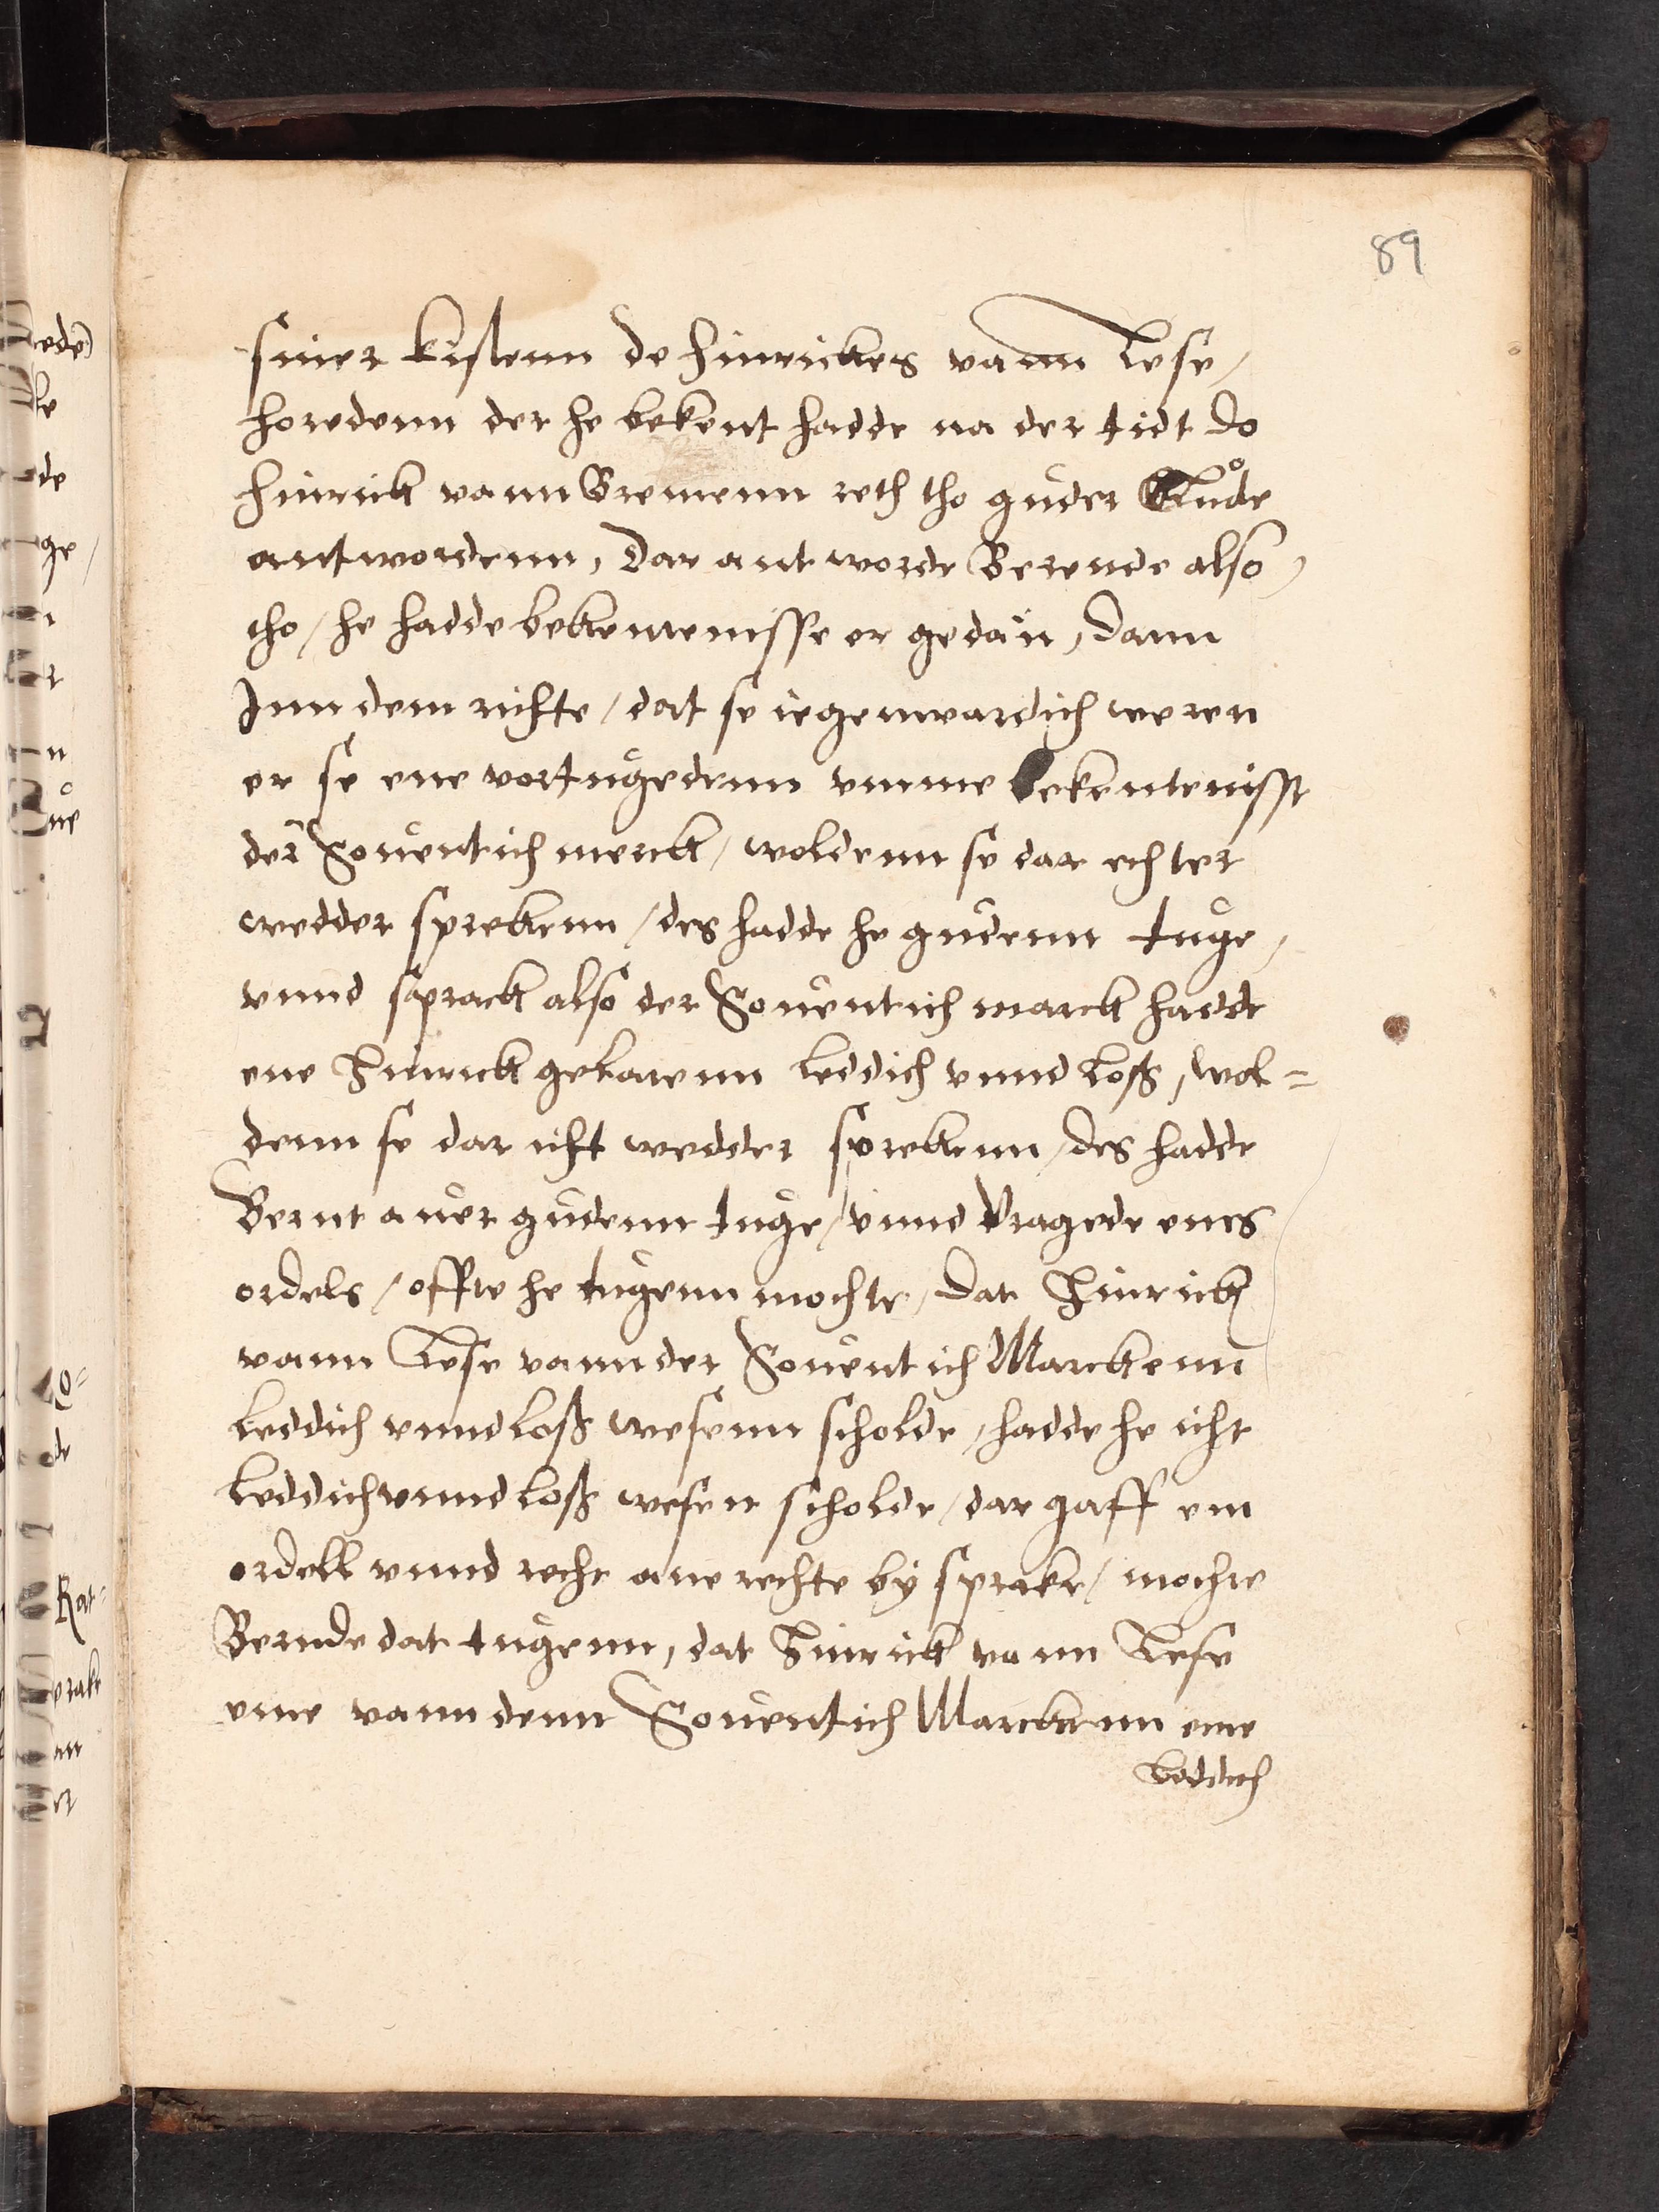 89
siner kistenn de hinrickes vann Lese /
horedenn der he bekent hadde na der tidt do
hinrick vann Bremenn reth tho guder Lude
antwordenn, dar antworde Berende also
tho / he hadde bekentenisse er gedan, dann
Inn dem richte / dat se iegenwardich weren
er se ene vortugedenn vmme bekentenisse
der Souentich merck / woldenn se dar echter
wedder sprekenn / des hadde he gudenn tuge /
vnnd sprack also der Souentich marck hadde
ene Hinrick gelatenn leddich vnnd loß, wol=
denn se dar icht wedder sprekenn / des hadde
Bernt auer gudenn tuge / vnnd vragede enes
ordels / offte he tugenn mochte, dat Hinrick
vann Lese vann der Souentich Marckenn
leddich vnnd loß wesenn scholde, hadde he icht
leddich vnnd loß wesen scholde / dar gaff em
ordell vnnd recht ane rechte by sprake / mochte
Berndt dat tugenn, dat Hinrick vann Lese
ene vann denn Souentich Marckenn ene
leddich